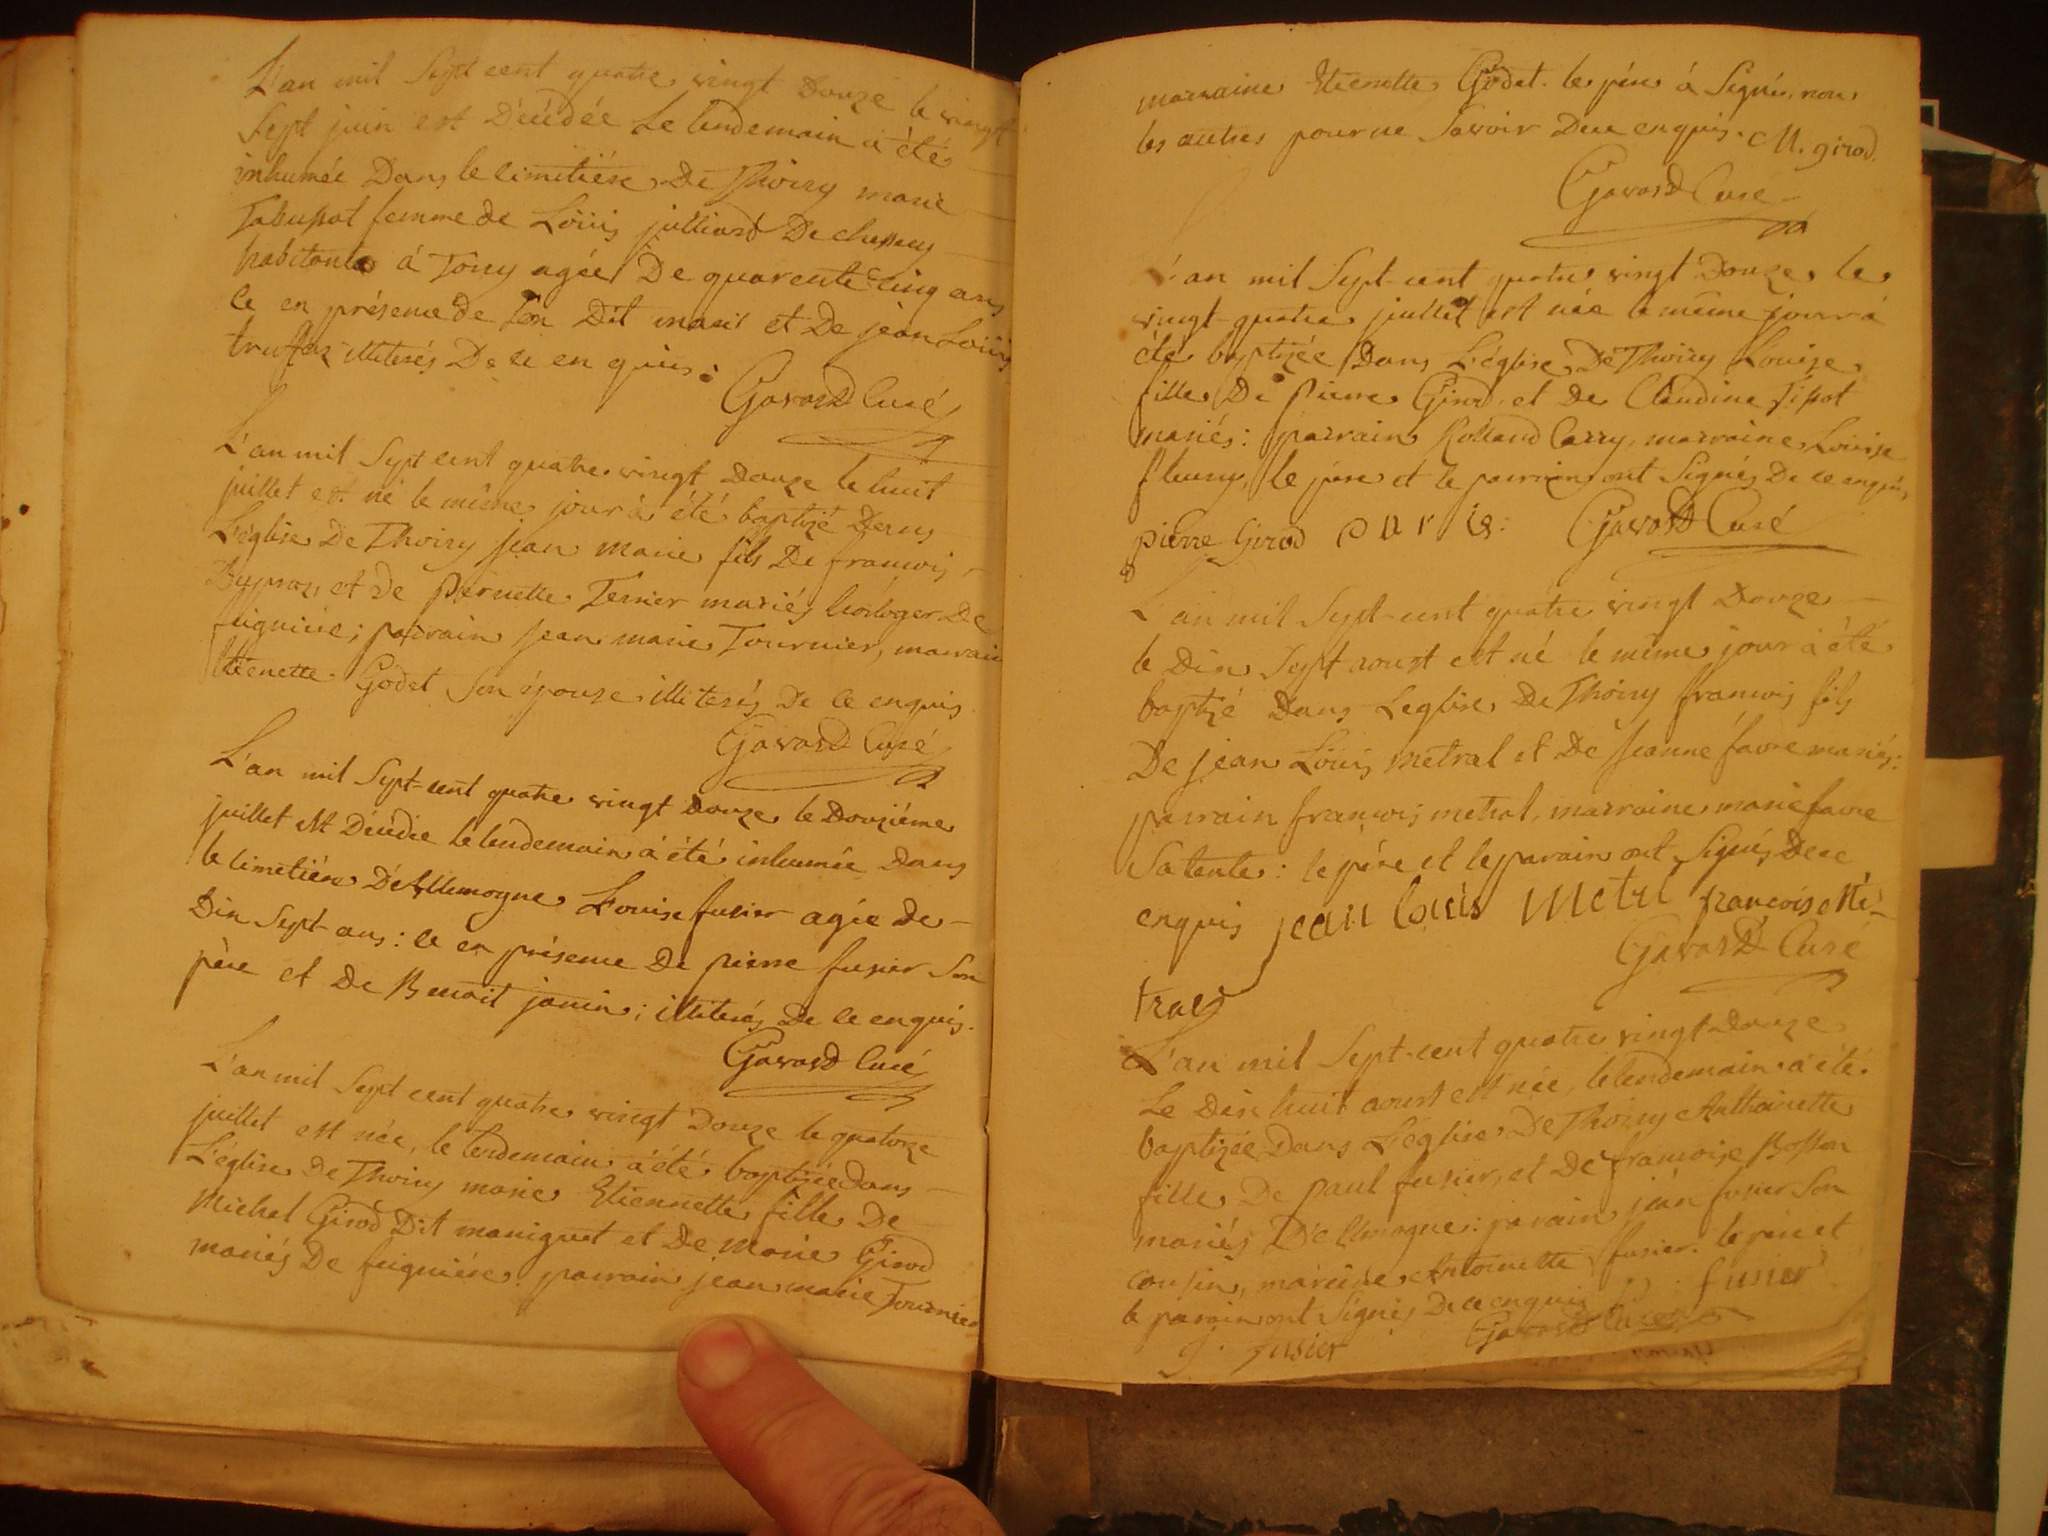 L'an mil Sept cent quatre vingt Douze le vingt
Sept juin est Décédée Le lendemain a été
inhumée Dans le cimitiére De Thoiry marie
femme de Loüis julliard De chessery
habitante á Toiry agée De quarente cinq ans
ce en présence de son Dit mari et De jean Loüis
truffaz illiterés De ce enquis.
Gavard Curé
L'an mil Sept cent quatre vingt Douze le huit
juillet est né le même jour à été baptizé Dans
L'église De Thoiry jean marie fils De francois
Dupraz et de Pernette Terrier mariés horloger De
feigniére; parrain jean marie Tournier, marraine
Etienette Godet Son épouse illiterés De ce enquis
Gavard Curé
L'an mil Sept-cent quatre vingt Douze le Douziéme
juillet est Décédée le lendemain à été inhumée Dans
le cimetiére D'Allemogne Louise fusier agée de
Dix Sept ans: ce en présence De pierre fusier Son
pére et De Benoit jonin; illiterés De ce enquis.
Gavard Curé
L'an mil Sept cent quatre vingt Douze le quatorze
juillet est née, le lendemain à été baptizée dans
L'église De Thoiry marie Etiennette fille De
Michel Girod Dit maniguet et De marie Girod
mariés De feigniére: parrain jean marie Tournier
marraine Etienette Godet. le pére á Signé, non
les autres pour ne Savoir De ce enquis. M. girod.
Gavard Curé
L'an mil Sept-cent quatre vingt Douze le
vingt-quatre juillet est née le même jour à
été baptizée Dans L'église De Thoiry Louize
fille De Pierre Girod, et De Claudine
mariés: parrain Rolland Carry, marraine Louise
fleury, le pére et le parrain ont Signés De ce enquis
pierre Girod Gavard Curé
L'an mil Sept-cent quatre vingt Douze
le Dix Sept aoust est né le même jour à été
baptizé Dans L'eglise De Thoiry francois fils
De jean Loüis metral et De Jeanne favre mariés:
parrain francois metral, marraine marie favre
Sa tante: le pére et le parain ont Signés De ce
enquis jean louis Metrl francois Mé-
Gavard Curé
tral
L'an mil Sept-cent quatre vingt Douze
Le Dix huit aoust est née, le lendemain à été
baptizée Dans L'église De Thoiry Anthoinette
fille De paul fusier, et De francoise Bosson
mariés D'Allmogne: parain jean fusier Son
cousin, maraine Antoinette fusier. le pére et
le parain ont Signés De ce enquis fusier
j. fusier Gavard Curé